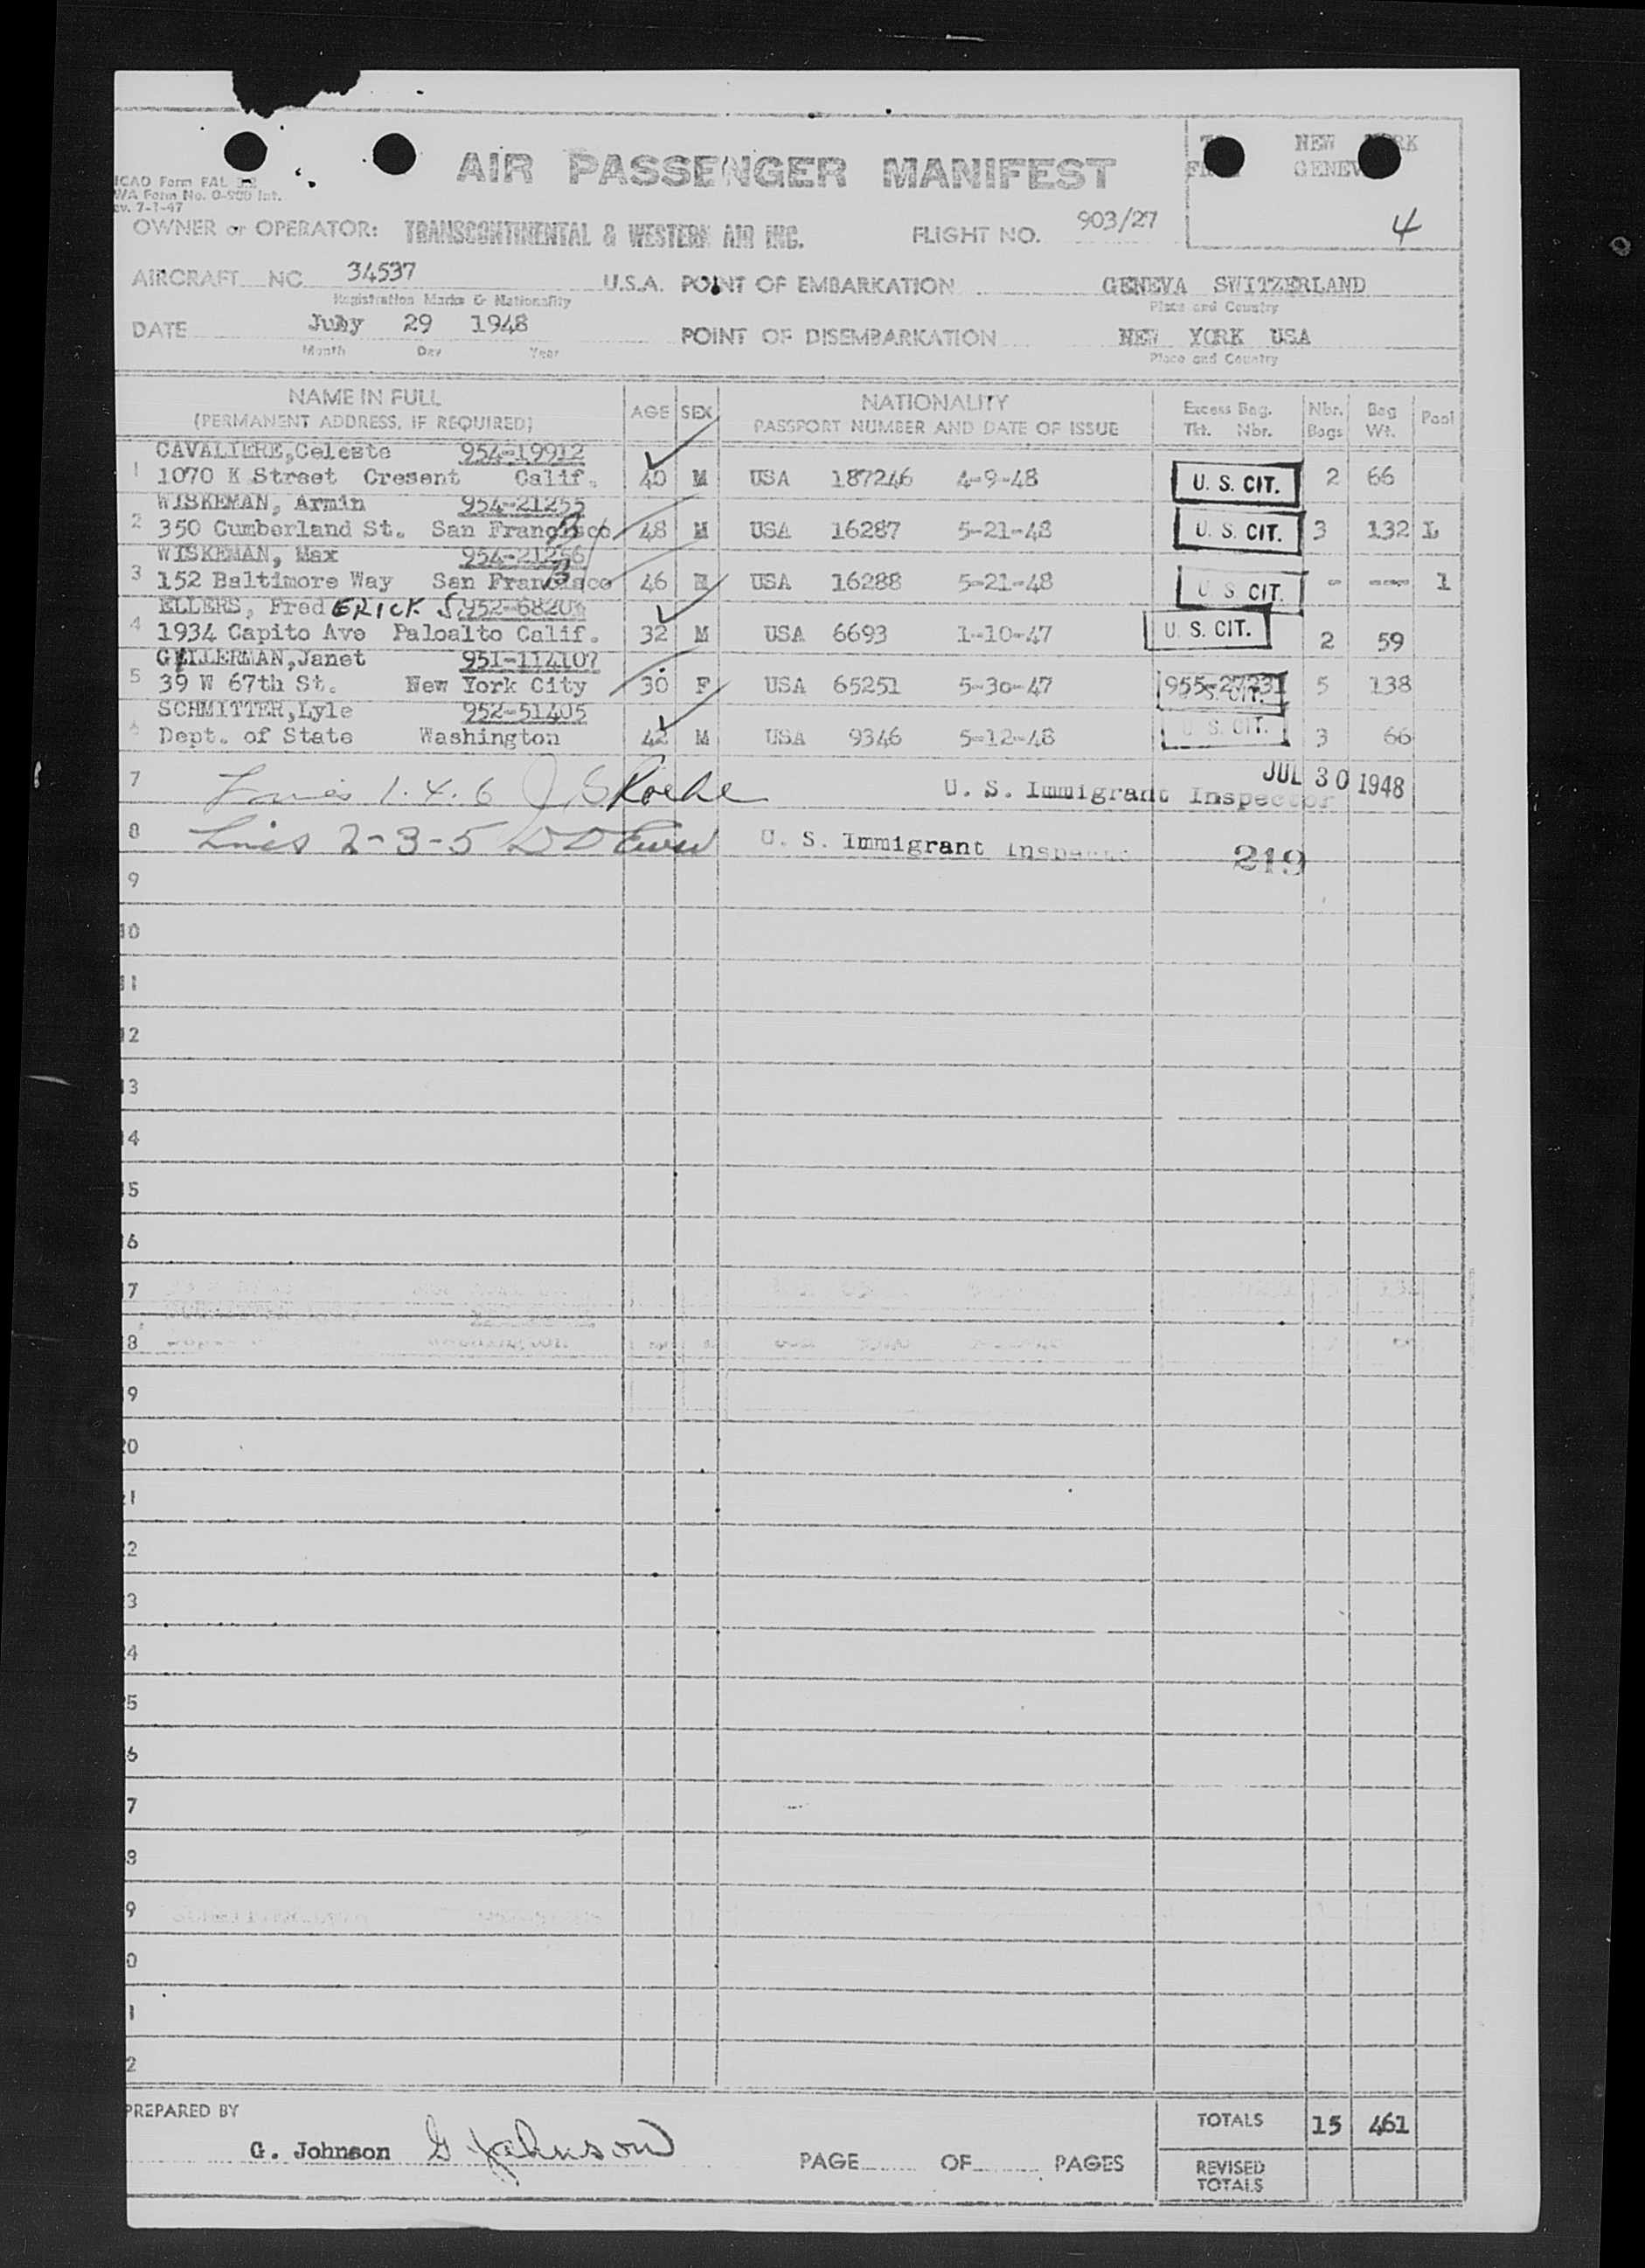 NEW
GENEV
AIR PASSENGER MANIFEST
ICAO Form FAL
WA Form No. 0-900 Int.
ev. 7-1-47
4
OWNER or OPERATOR: TRANSCONTINENTAL & WESTERN AIR INC. FLIGHT NO. 903/27
AIRCRAFT NC 34537 U.S.A. POINT OF EMBARKATION GENEVA SWITZERLAND
Registration Marks & Nationality Place and Country
DATE July 29 1948 POINT OF DISEMBARKATION NEW YORK USA
Month Day Year Place and Country
NAME IN FULL AGE SEX NATIONALITY Excess Bag. Nbr. Bag Pool
(PERMANENT ADDRESS, IF REQUIRED) PASSPORT NUMBER AND DATE OF ISSUE Tkt. Nbr. Bags Wt.
CAVALIERE,Celeste 954-19912
1 1070 K Street Cresent Calif. 40 M USA 187246 4-9-48 U. S. CIT. 2 66
WISKEMAN, Armin 954-21255
2 350 Cumberland St. San Francisco 48 M USA 16287 5-21-48 U. S. CIT. 3 132 L
WISKEMAN, Max 954-21256
3 152 Baltimore Way San Francisco 46 M USA 16288 5-21-48 U. S. CIT. - --- 1
ELLERS, Fred ERICK S. 952-6820
4 1934 Capito Ave Paloalto Calif. 32 M USA 6693 1-10-47 U. S. CIT. 2 59
GELLERMAN,Janet 951-114107
5 39 W 67th St. New York City 30 F USA 65251 5-30-47 955-27231 U. S. CIT. 5 138
SCHMITTER,Lyle 952-51405
6 Dept. of State Washington 42 M USA 9346 5-12-48 U. S. CIT. 3 66
7 Lines 1.4.6 U. S. Immigrant Inspector JUL 30 1948
8 Lines 2-3-5 U. S. Immigrant Inspector 219
9
10
11
12
13
14
15
16
17
18
19
20
21
22
23
24
5
6
7
8
9
0
1
2
PREPARED BY TOTALS 15 461
G. Johnson G Johnson PAGE OF PAGES REVISED
TOTALS